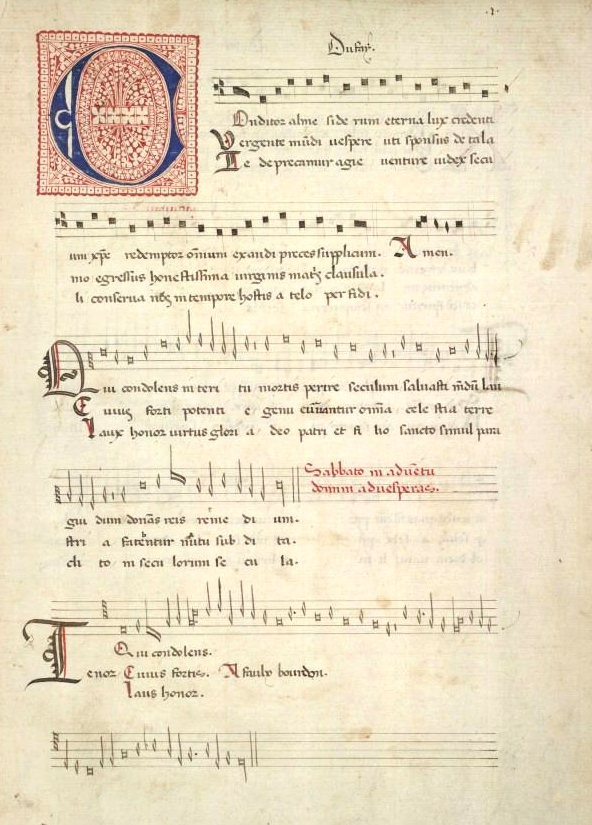 .1.
Dufay.
Onditor alme side rum eterna lux credenti
Vergente mūdi uespere uti sponsus de tala
Te deprecamur agie uenture iudex secu
um xp̄e redemptor om̄ium exaudi preces supplicum. A men.
mo egressus honestissima uirginis matris clausula.
li conserua nos in tempore hostis a telo perfidi.
Qui condolens interi tu mortis perire seculum saluasti mūdū lan
Cuius forti potenti e genu curuantur omnia cele stia terre
Laux honor uirtus glori a deo patri et fi lio sancto simul para
gui dum donās reis reme di um.
Sabbato in aduētu
domini ad uesperas.
stri a fatentur nutu sub di ta.
cli to in secu lorum se cu la.
Qui condolens.
Tenor Cuius fortis. A faulx bourdon.
Laus honor.